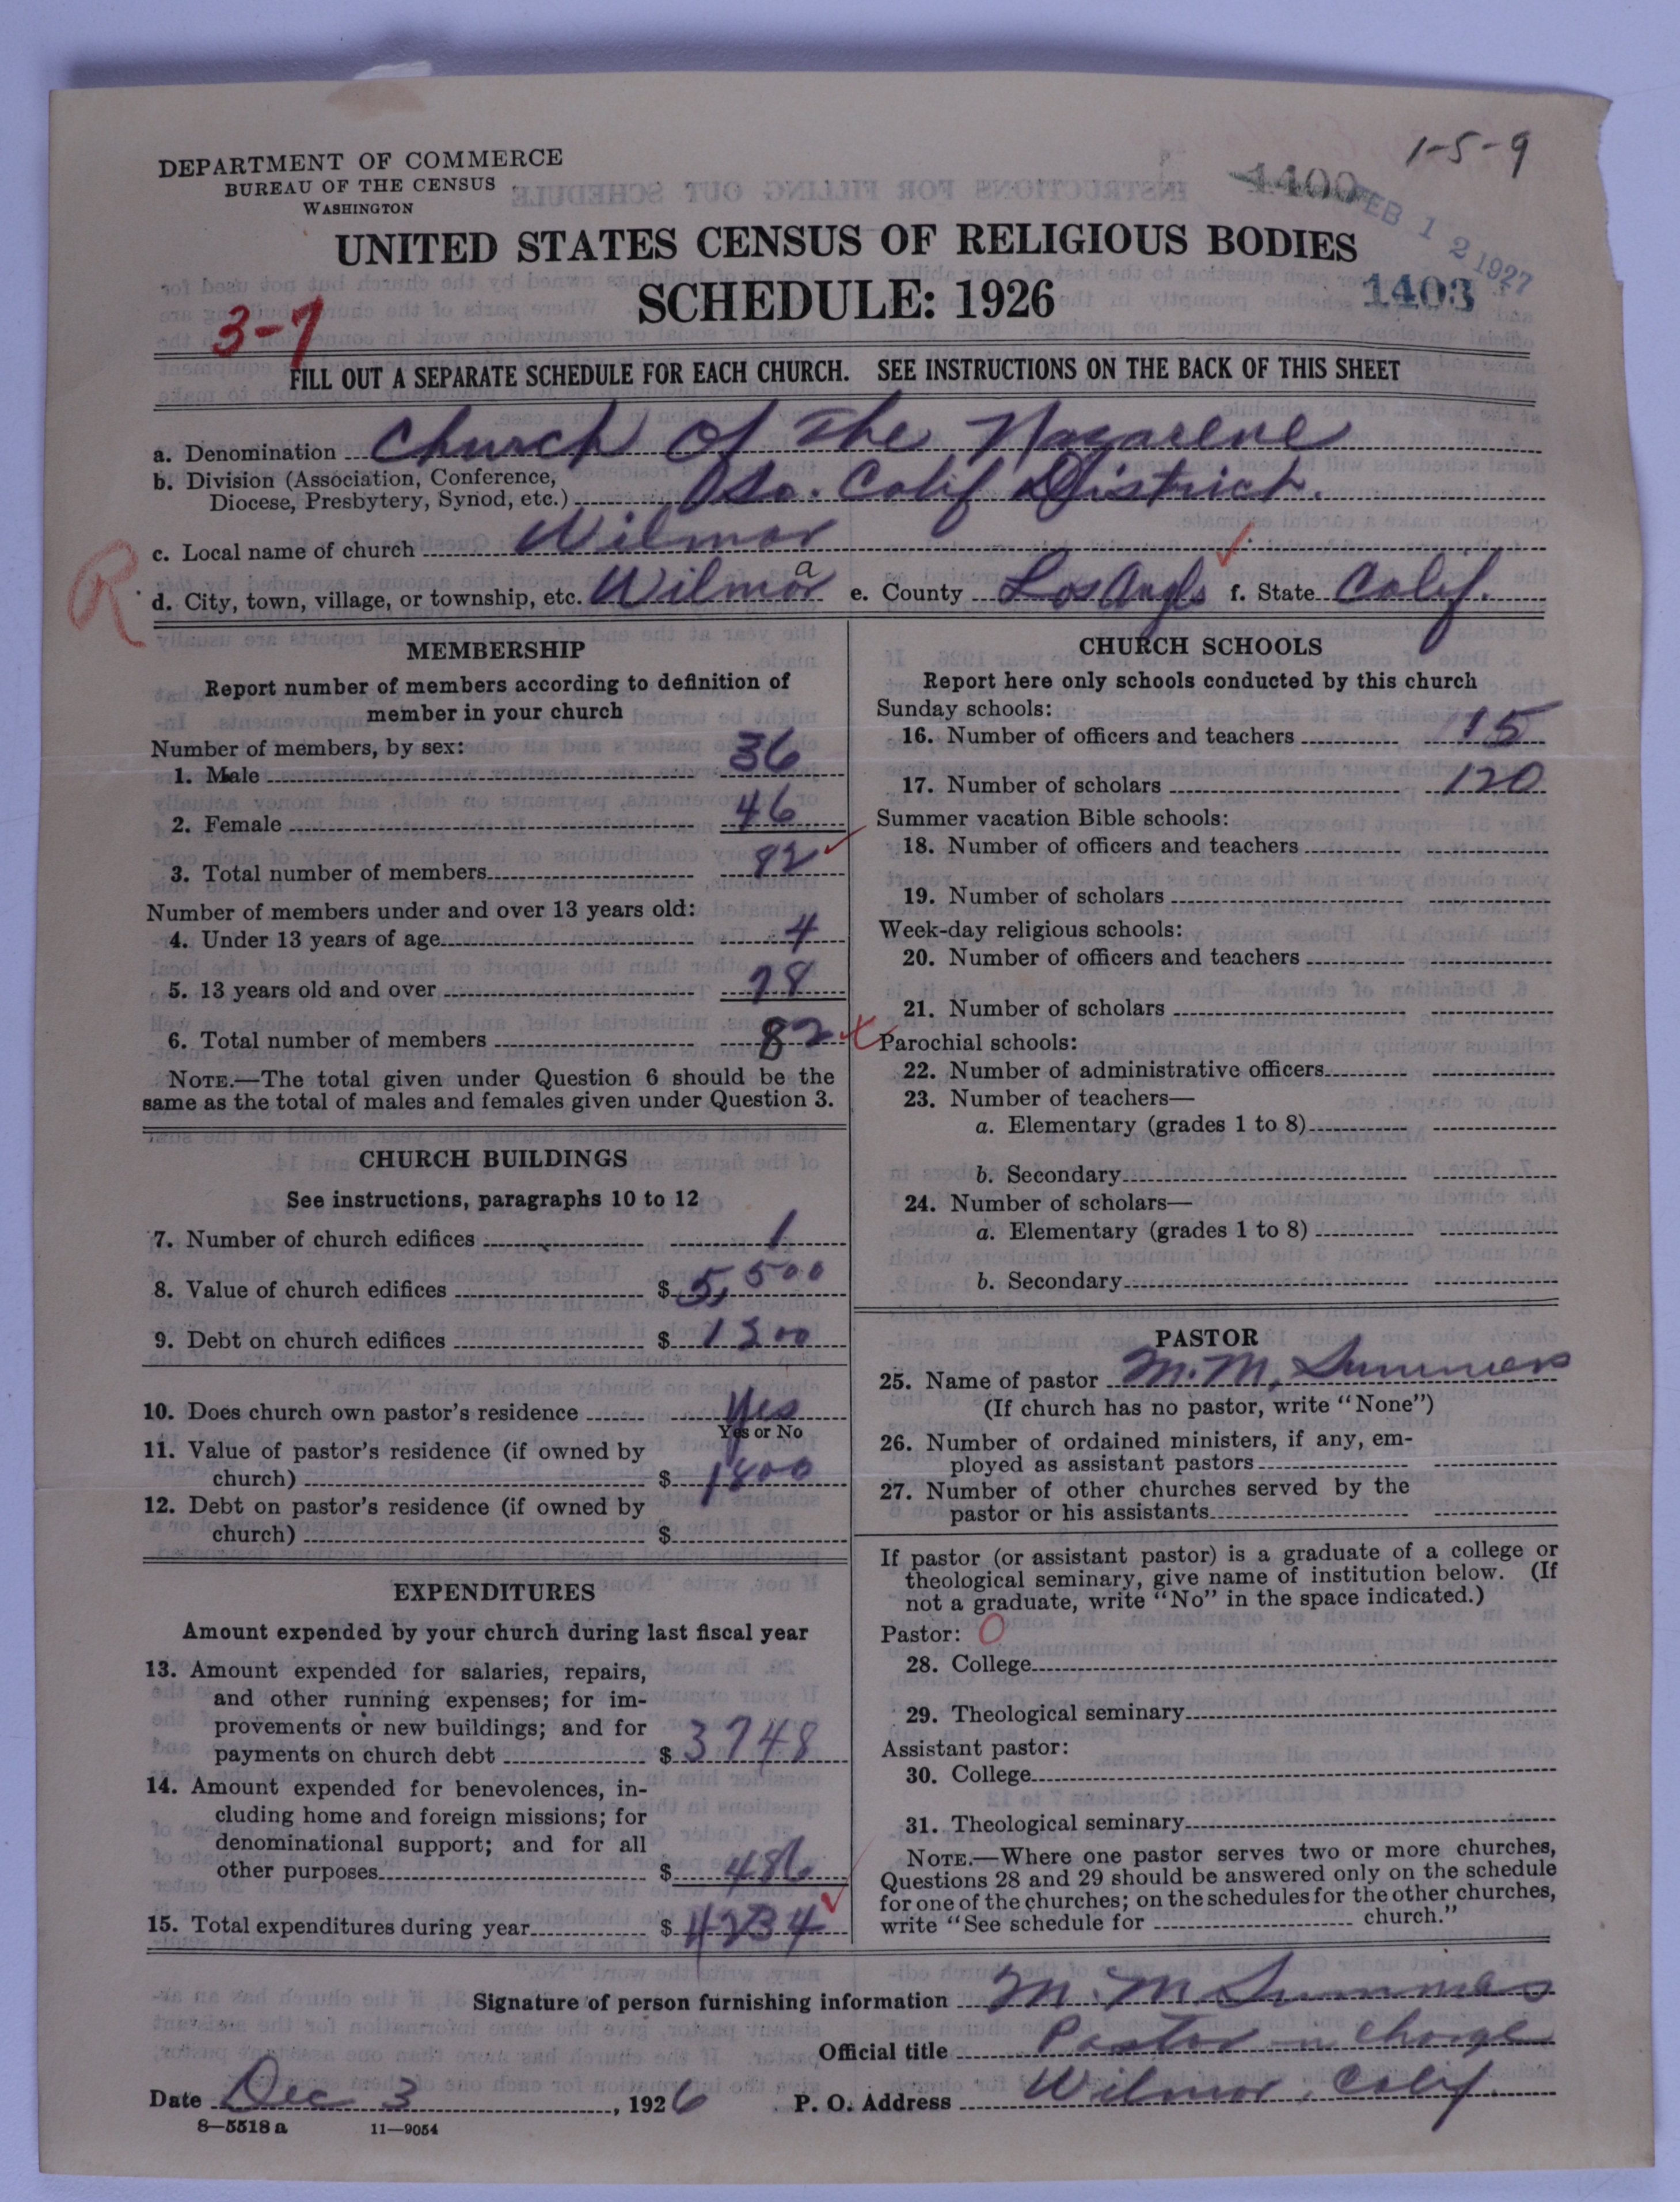 1-5-9
DEPARTMENT OF COMMERCE
BUREAU OF THE CENSUS
WASHINGTON
1400
FEB 12 1927
UNITED STATES CENSUS OF RELIGIOUS BODIES
SCHEDULE: 1926
1403
3-7
FILL OUT A SEPARATE SCHEDULE FOR EACH CHURCH. SEE INSTRUCTIONS ON THE BACK OF THIS SHEET
a. Denomination Church of The Nazarene
b. Division (Association, Conference,
Diocese, Presbytery, Synod, etc.) So. Calif District.
c. Local name of church Wilmar
R
d. City, town, village, or township, etc. Wilmar a e. County Los Angls f. State Calif.
MEMBERSHIP
Report number of members according to definition of
member in your church
Number of members, by sex:
1. Male 36
2. Female 46
3. Total number of members 82
Number of members under and over 13 years old:
4. Under 13 years of age 4
5. 13 years old and over 78
6. Total number of members 82
NOTE.—The total given under Question 6 should be the
same as the total of males and females given under Question 3.
CHURCH BUILDINGS
See instructions, paragraphs 10 to 12
7. Number of church edifices 1
8. Value of church edifices $ 5,500
9. Debt on church edifices $ 1300
10. Does church own pastor's residence Yes
Yes or No
11. Value of pastor's residence (if owned by
church) $ 1800
12. Debt on pastor's residence (if owned by
church) $
EXPENDITURES
Amount expended by your church during last fiscal year
13. Amount expended for salaries, repairs,
and other running expenses; for im-
provements or new buildings; and for
payments on church debt $ 3748
14. Amount expended for benevolences, in-
cluding home and foreign missions; for
denominational support; and for all
other purposes $ 486
15. Total expenditures during year $ 4234
CHURCH SCHOOLS
Report here only schools conducted by this church
Sunday schools:
16. Number of officers and teachers 15
17. Number of scholars 120
Summer vacation Bible schools:
18. Number of officers and teachers
19. Number of scholars
Week-day religious schools:
20. Number of officers and teachers
21. Number of scholars
Parochial schools:
22. Number of administrative officers
23. Number of teachers—
a. Elementary (grades 1 to 8)
b. Secondary
24. Number of scholars—
a. Elementary (grades 1 to 8)
b. Secondary
PASTOR
25. Name of pastor M. M. Summers
(If church has no pastor, write "None")
26. Number of ordained ministers, if any, em-
ployed as assistant pastors
27. Number of other churches served by the
pastor or his assistants
If pastor (or assistant pastor) is a graduate of a college or
theological seminary, give name of institution below. (If
not a graduate, write "No" in the space indicated.)
Pastor: O
28. College
29. Theological seminary
Assistant pastor:
30. College
31. Theological seminary
NOTE.—Where one pastor serves two or more churches,
Questions 28 and 29 should be answered only on the schedule
for one of the churches; on the schedules for the other churches,
write "See schedule for church."
Signature of person furnishing information M. M. Summers
Official title Pastor in Charge
Date Dec 3, 1926 P. O. Address Wilmar, Calif.
8—5518 a 11—9054